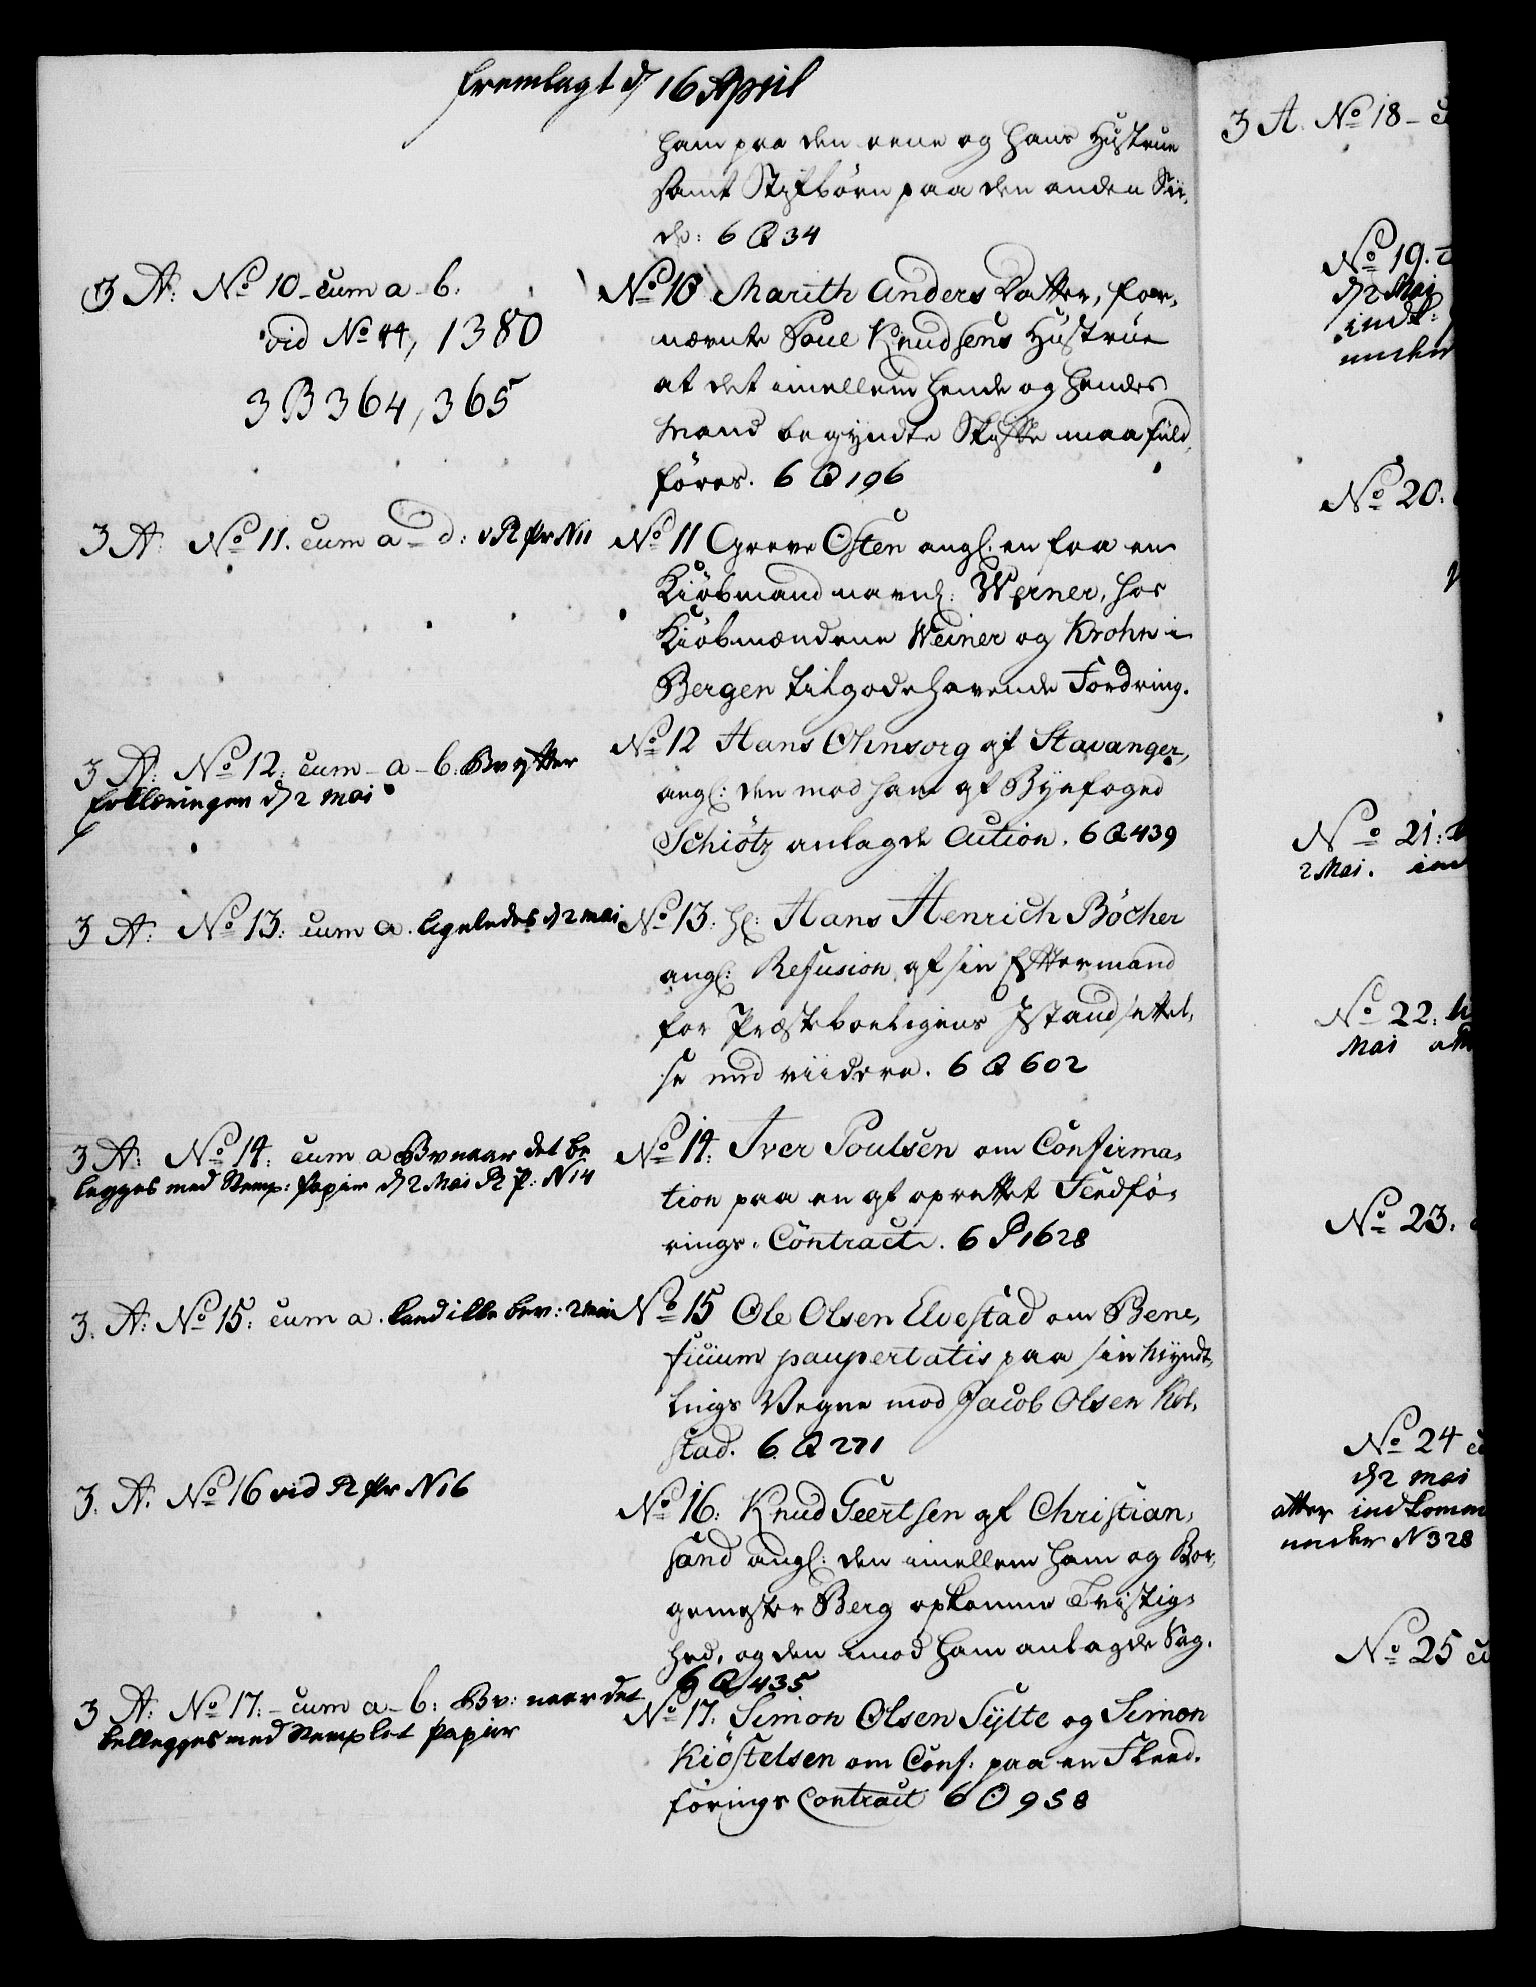 fremlagt d/ 16 April
ham paa den eene og hans Hustrue
samt Stifbörn paa den anden Sii-
de: 6 Q 34
3 A: No 10 - cum a - b.
vid No 44, 1380
3 B 364, 365
No 10 Marith Anders Datter, for-
nævnte Poul Knudsens Hustrue
at det imellem hende og hendes
Mand begyndte Skifte maa fuld-
föres. 6 Q 196
3 A: No 11. cum a - d: v R Pr N 11
No 11 Greve Osten angl. en fra en
Kiöbmand navnl: Werner, hos
Kiöbmændene Weiner og Krohn i
Bergen tilgodehavende Fordring.
3 A: No 12: cum - a - b. Bv efter
Erklæringen d/ 2 Mai
No 12 Hans Ohnsorg af Stavanger,
angl: den mod ham af Byefoged
Schiötz anlagde Aution. 6 Q 439
3 A: No 13: cum a. ligeledes d/ 2 Mai
No 13. Hr: Hans Henrich Böcher
angl: Refusion af sin Eftermand
for Præsteboeligens Istandsættel-
se med viidere. 6 Q 602
3 A: No 14: cum a Bv naar det be
legges med Stemp: Papier d/ 2 Mai R P: N 14
No 14: Iver Poulsen om Confirma-
tion paa en af oprettet Fledfö-
rings-Contract. 6 P 1628
3. A: No 15: cum a. kand ikke bev: 2 Mai
No 15 Ole Olsen Elvestad om Bene-
ficium paupertatis paa sin Myndt-
lings Vegne mod Jacob Olsen Kol-
stad. 6. Q 271
3. A. No 16 vid R Pr N 16
No 16: Knud Geertsen af Christian-
sand angl: den imellem ham og Bor-
gemester Berg opkomne Tvistig-
hed, og den imod ham anlagde Sag.
6 Q 435
3 A: No 17: - cum a - b: Bv: naar det
bellegges med Stemplet Papier
No 17. Simon Olsen Sylte og Simon
Kiöstelsen om Conf: paa en Fled-
förings Contract 6 O 958
3 A. No 18 -
No 19.
d/ 2 Mai
indk:
under
No 20.
No 21:
2 Mai.
No 22:
Mai
No 23.
No 24
d/ 2 Mai
atter indkomm
under N 328
No 25